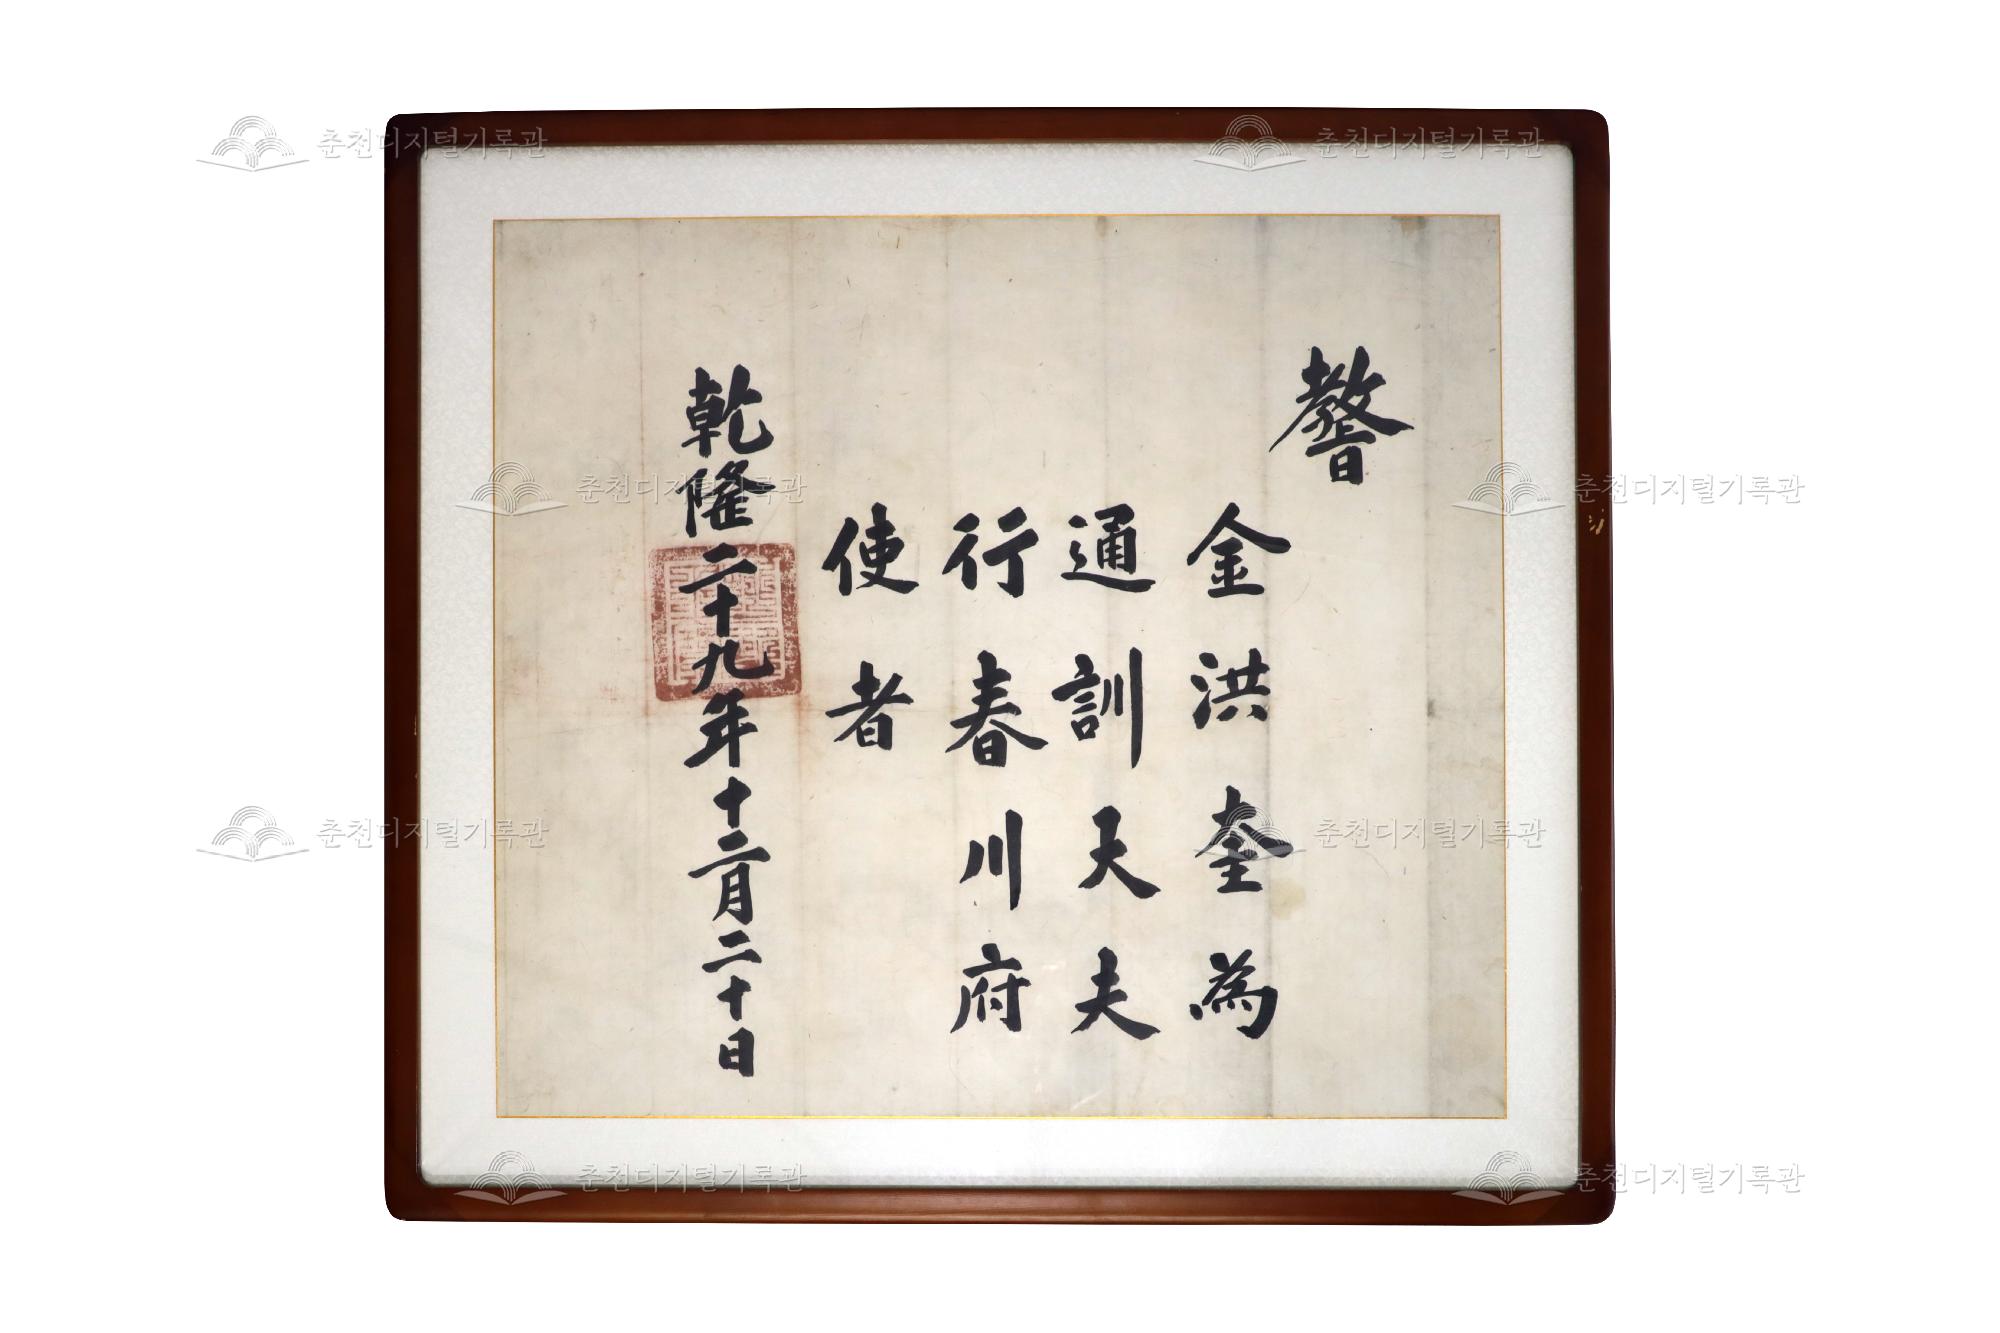 敎旨
金洪奎為
通訓大夫
行春川府
使者
乾隆二十九年十二月二十日
춘천디지털기록관
춘천디지털기록관
춘천디지털기록관
춘천디지털기록관
춘천디지털기록관
춘천디지털기록관
춘천디지털기록관
춘천디지털기록관